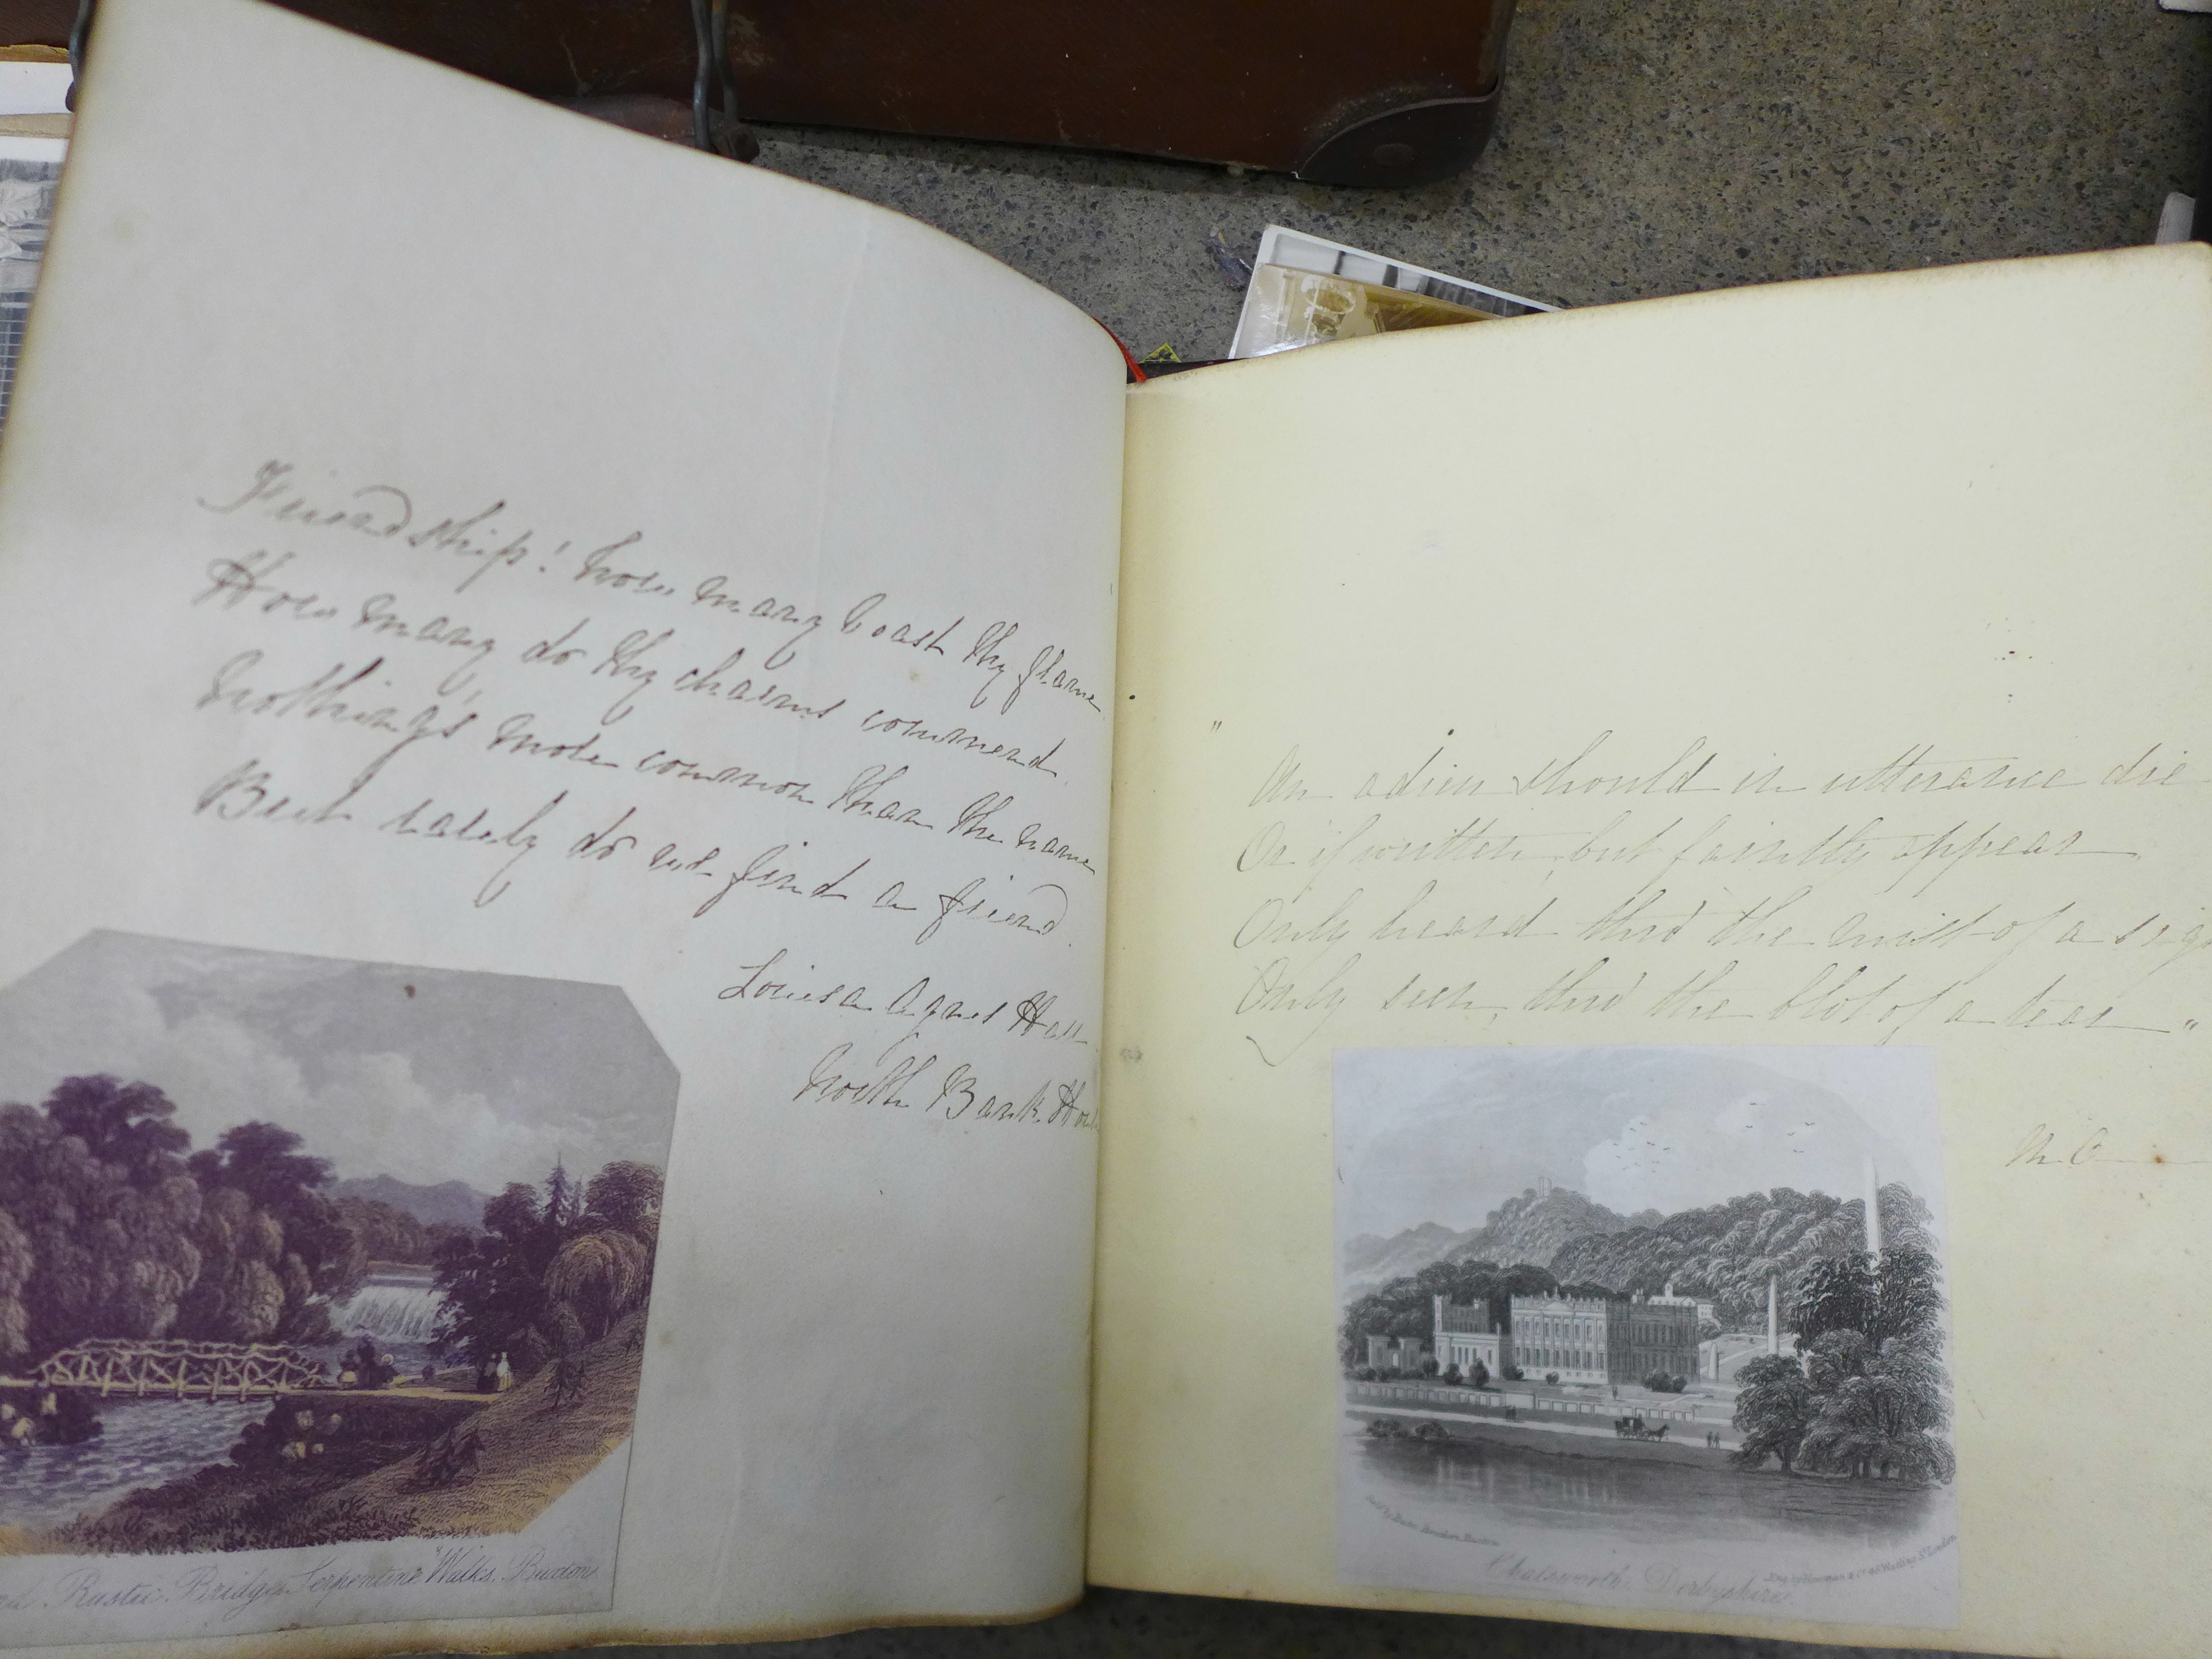 Friendship! how many boast thy flame
How many do thy charms commend
Nothing's more common than the name
But rarely do we find a friend.
Louisa Agnes Hall
North Bank
Rustic Bridge, Serpentine Walks, Buxton
" An adieu should in utterance die
Or if written, but faintly appear
Only heard thro' the mist of a sigh
Only seen, thro' the blot of a tear "
M. C
Chatsworth, Derbyshire.